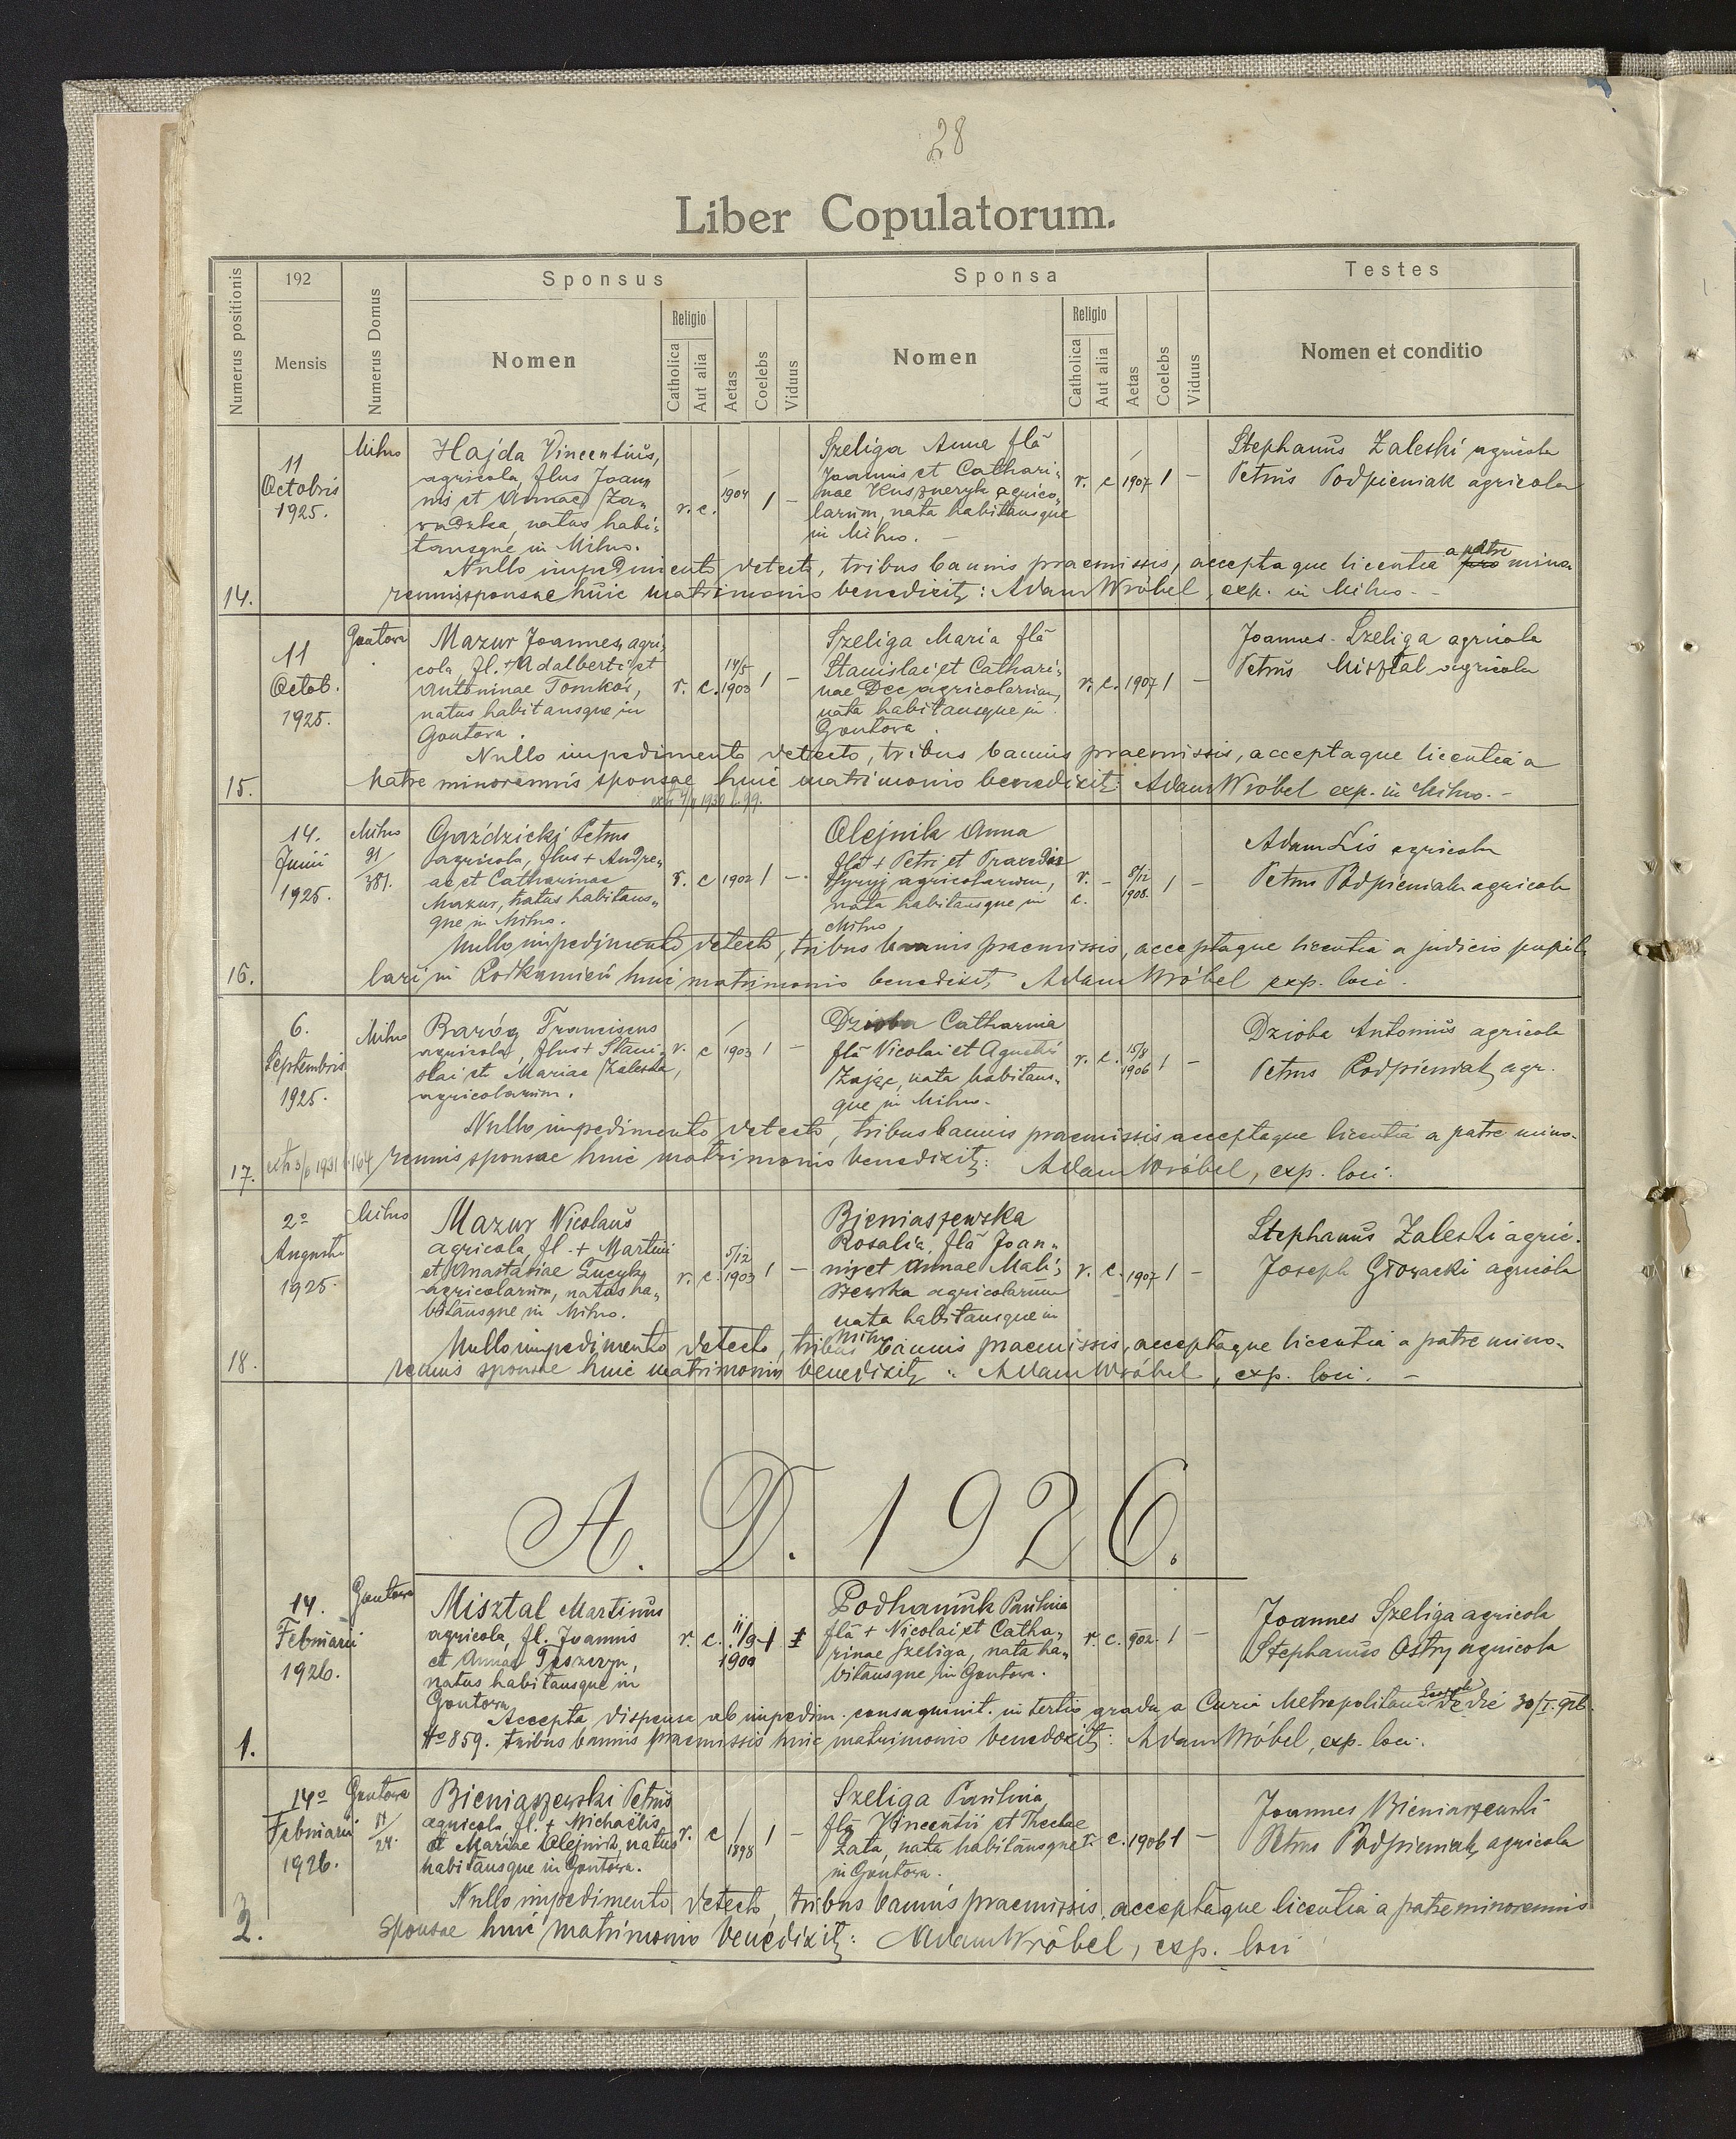 28
Liber Copulatorum.
Numerus positionis
192
Mensis
Numerus Domus
Sponsus
Nomen
Religio
Catholica
Aut alia
Aetas
Coelebs
Viduus
Sponsa
Nomen
Religio
Catholica
Aut alia
Aetas
Coelebs
Viduus
Testes
Nomen et conditio
14.
11
Octobris
1925.
Milno
Hajda Vincentius,
agricola, flus Joan„
nis et Annae Za„
wadzka, natus habi„
tansque in Milno.
r. c. 1904 1 –
Szeliga Anna fla
Joannis et Cathari„
nae Kuszneryk agrico„
larum, nata habitansque
in Milno. –
r. c 1907 1 –
Stephanus Zaleski agricola
Petrus Podpieniak agricola
Nullo impedimento detecto, tribus bannis praemissis, acceptaque licentia a patre mino„
rennis sponsae huic matrimonio benedixit: Adam Wróbel, exp. in Milno. –
15.
11
Octob.
1925.
Gontowa
Mazur Joannes, agri„
cola, fl. + Adalberti et
Antoninae Tomków,
natus habitansque in
Gontowa.
r. c. 14/5 1903 1 –
Szeliga Maria fla
Stanislai et Cathari„
nae Dec agricolarum,
nata habitansque in
Gontowa.
r. c. 1907 1 –
Joannes Szeliga agricola
Petrus Misztal agricola
Nullo impedimento detecto, tribus bannis praemissis, acceptaque licentia a
patre minorennis sponsae huic matrimonio benedixit: Adam Wróbel exp. in Milno. –
16.
14.
Junii
1925.
Milno
91/
381.
Gaździcki Petrus
agricola, flus + Andre„
ae et Catharinae
Mazur, natus habitans„
que in Milno.
r. c 1902 1 –
Olejnik Anna
fla + Petri et Praxedis
Hyryj agricolarum,
nata habitansque in
Milno
r. c. – 8/12 1908. 1 –
Adam Lis agricola
Petrus Podpieniak agricola
Nullo impedimento detecto, tribus bannis praemissis, acceptaque licentia a judicio pupil„
lari in Podkamień huic matrimonio benedixit, Adam Wróbel exp. loci.
17.
6.
Septembris
1925.
Milno
Baróg Franciscus
agricola, flus + Stani„
slai et Mariae Zaleska,
agricolarum.
r. c 1903 1 –
Dzioba Catharina
fla Nicolai et Agnetis
Zając, nata habitans„
que in Milno.
r. c. 15/8 1906 1 –
Dzioba Antonius agricola
Petrus Podpieniak agr.
Nullo impedimento detecto, tribus bannis praemissis acceptaque licentia a patre mino„
rennis sponsae huic matrimonio benedixit: Adam Wróbel, exp. loci.
18.
2º
Augusti
1925.
Milno
Mazur Nicolaus
agricola, fl. + Martini
et Anastasiae Łucyk
agricolarum, natus ha„
bitansque in Milno.
r. c. 5/12 1903 1 –
Bieniaszewska
Rosalia, fla Joan„
nis et Annae Mali„
szewska agricolarum
nata habitansque in
Milno
r. c. 1907 1 –
Stephanus Zaleski agric.
Joseph Głowacki agricola
Nullo impedimento detecto, tribus bannis praemissis, acceptaque licentia a patre mino„
rennis sponsae huic matrimonio benedixit: Adam Wróbel, exp. loci. –
A. D. 1926.
1.
14.
Februarii
1926.
Gontowa
Misztal Martinus
agricola, fl. Joannis
et Annae
natus habitansque in
Gontowa
r. c. 11/9 1900 1
Podhaniuk Paulina
fla + Nicolai et Catha„
rinae Szeliga, nata ha„
bitansque in Gontowa.
r. c. 902. 1 –
Joannes Szeliga agricola
Stephanus Ostry agricola
Accepta dispensa ab impedim. consaguinit. in tertio gradu a Curia Metropolitana de die 30/I. 926
No 859. tribus bannis praemissis huic matrimonio benedixit: Adam Wróbel, exp. loci.
2.
14º
Februarii
1926.
Gontowa
24.
Bieniaszewski Petrus
agricola fl. + Michaelis
et Mariae Olejnik, natus
habitansque in Gontowa.
r. c 1898 1 –
Szeliga Paulina
fla Vincentii et Theclae
Zata, nata habitansque
in Gontowa.
r. c. 1906 1 –
Joannes Bieniaszewski
Petrus Podpieniak agricola
Nullo impedimento detecto, tribus bannis praemissis, acceptaque licentia a patre minorennis
sponsae huic matrimonio benedixit: Adam Wróbel, exp. loci